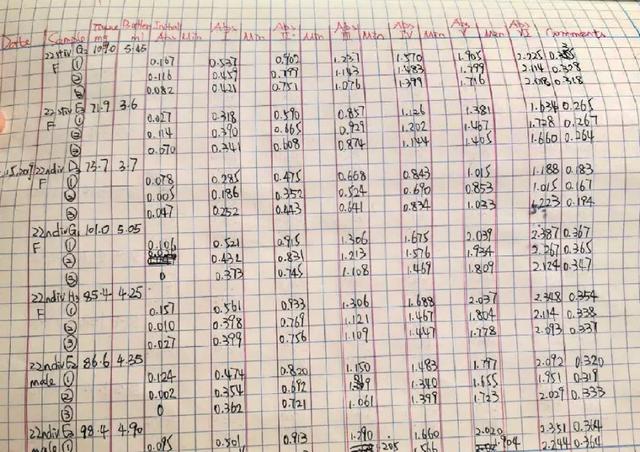 Date Sample Tissue mg Buffer ml Initial Abs Min Abs Min Abs II Min Abs III Min Abs IV Min Abs V Min Abs VI Comments
22ndiv G2 109.0 5.45
F ① 0.167 0.537 0.902 1.237 1.570 1.905 2.225
② 0.116 0.457 0.799 1.143 1.483 1.799 2.114 0.328
③ 0.082 0.421 0.751 1.076 1.399 1.716 2.018 0.318
71.9 3.6
F ① 0.027 0.318 0.590 0.857 1.126 1.381 1.634 0.265
② 0.114 0.390 0.665 0.929 1.202 1.467 1.728 0.267
③ 0.070 0.341 0.608 0.874 1.144 1.405 1.660 0.264
22ndiv 73.7 3.7
F ① 0.078 0.285 0.475 0.668 0.843 1.015 1.188 0.183
② 0.005 0.186 0.352 0.524 0.690 0.853 1.015 0.167
③ 0.047 0.252 0.443 0.641 0.834 1.033 0.194
22ndiv G1 101.0 5.05
F ① 0.106 0.521 0.915 1.306 1.675 2.039 2.387 0.367
② 0.432 0.831 1.213 1.576 1.934 2.267 0.365
③ 0 0.373 0.745 1.108 1.469 1.809 2.124 0.347
22ndiv H2 85.4 4.25
F ① 0.157 0.561 0.933 1.306 1.688 2.037 2.348 0.354
② 0.010 0.398 0.769 1.121 1.467 1.804 2.114 0.338
③ 0.027 0.399 0.756 1.109 1.447 1.778 2.093 0.337
22ndiv E2 86.6 4.35
male ① 0.124 0.474 0.820 1.150 1.483 1.797 2.092 0.320
② 0.002 0.354 0.692 1.340 1.655 1.951 0.319
③ 0 0.362 0.721 1.061 1.399 1.723 2.029 0.333
22ndiv 98.4 4.90
male ① 0.095 0.501 0.913 1.290 1.660 2.020 2.351 0.364
1.205 1.566 1.904 2.244 0.364